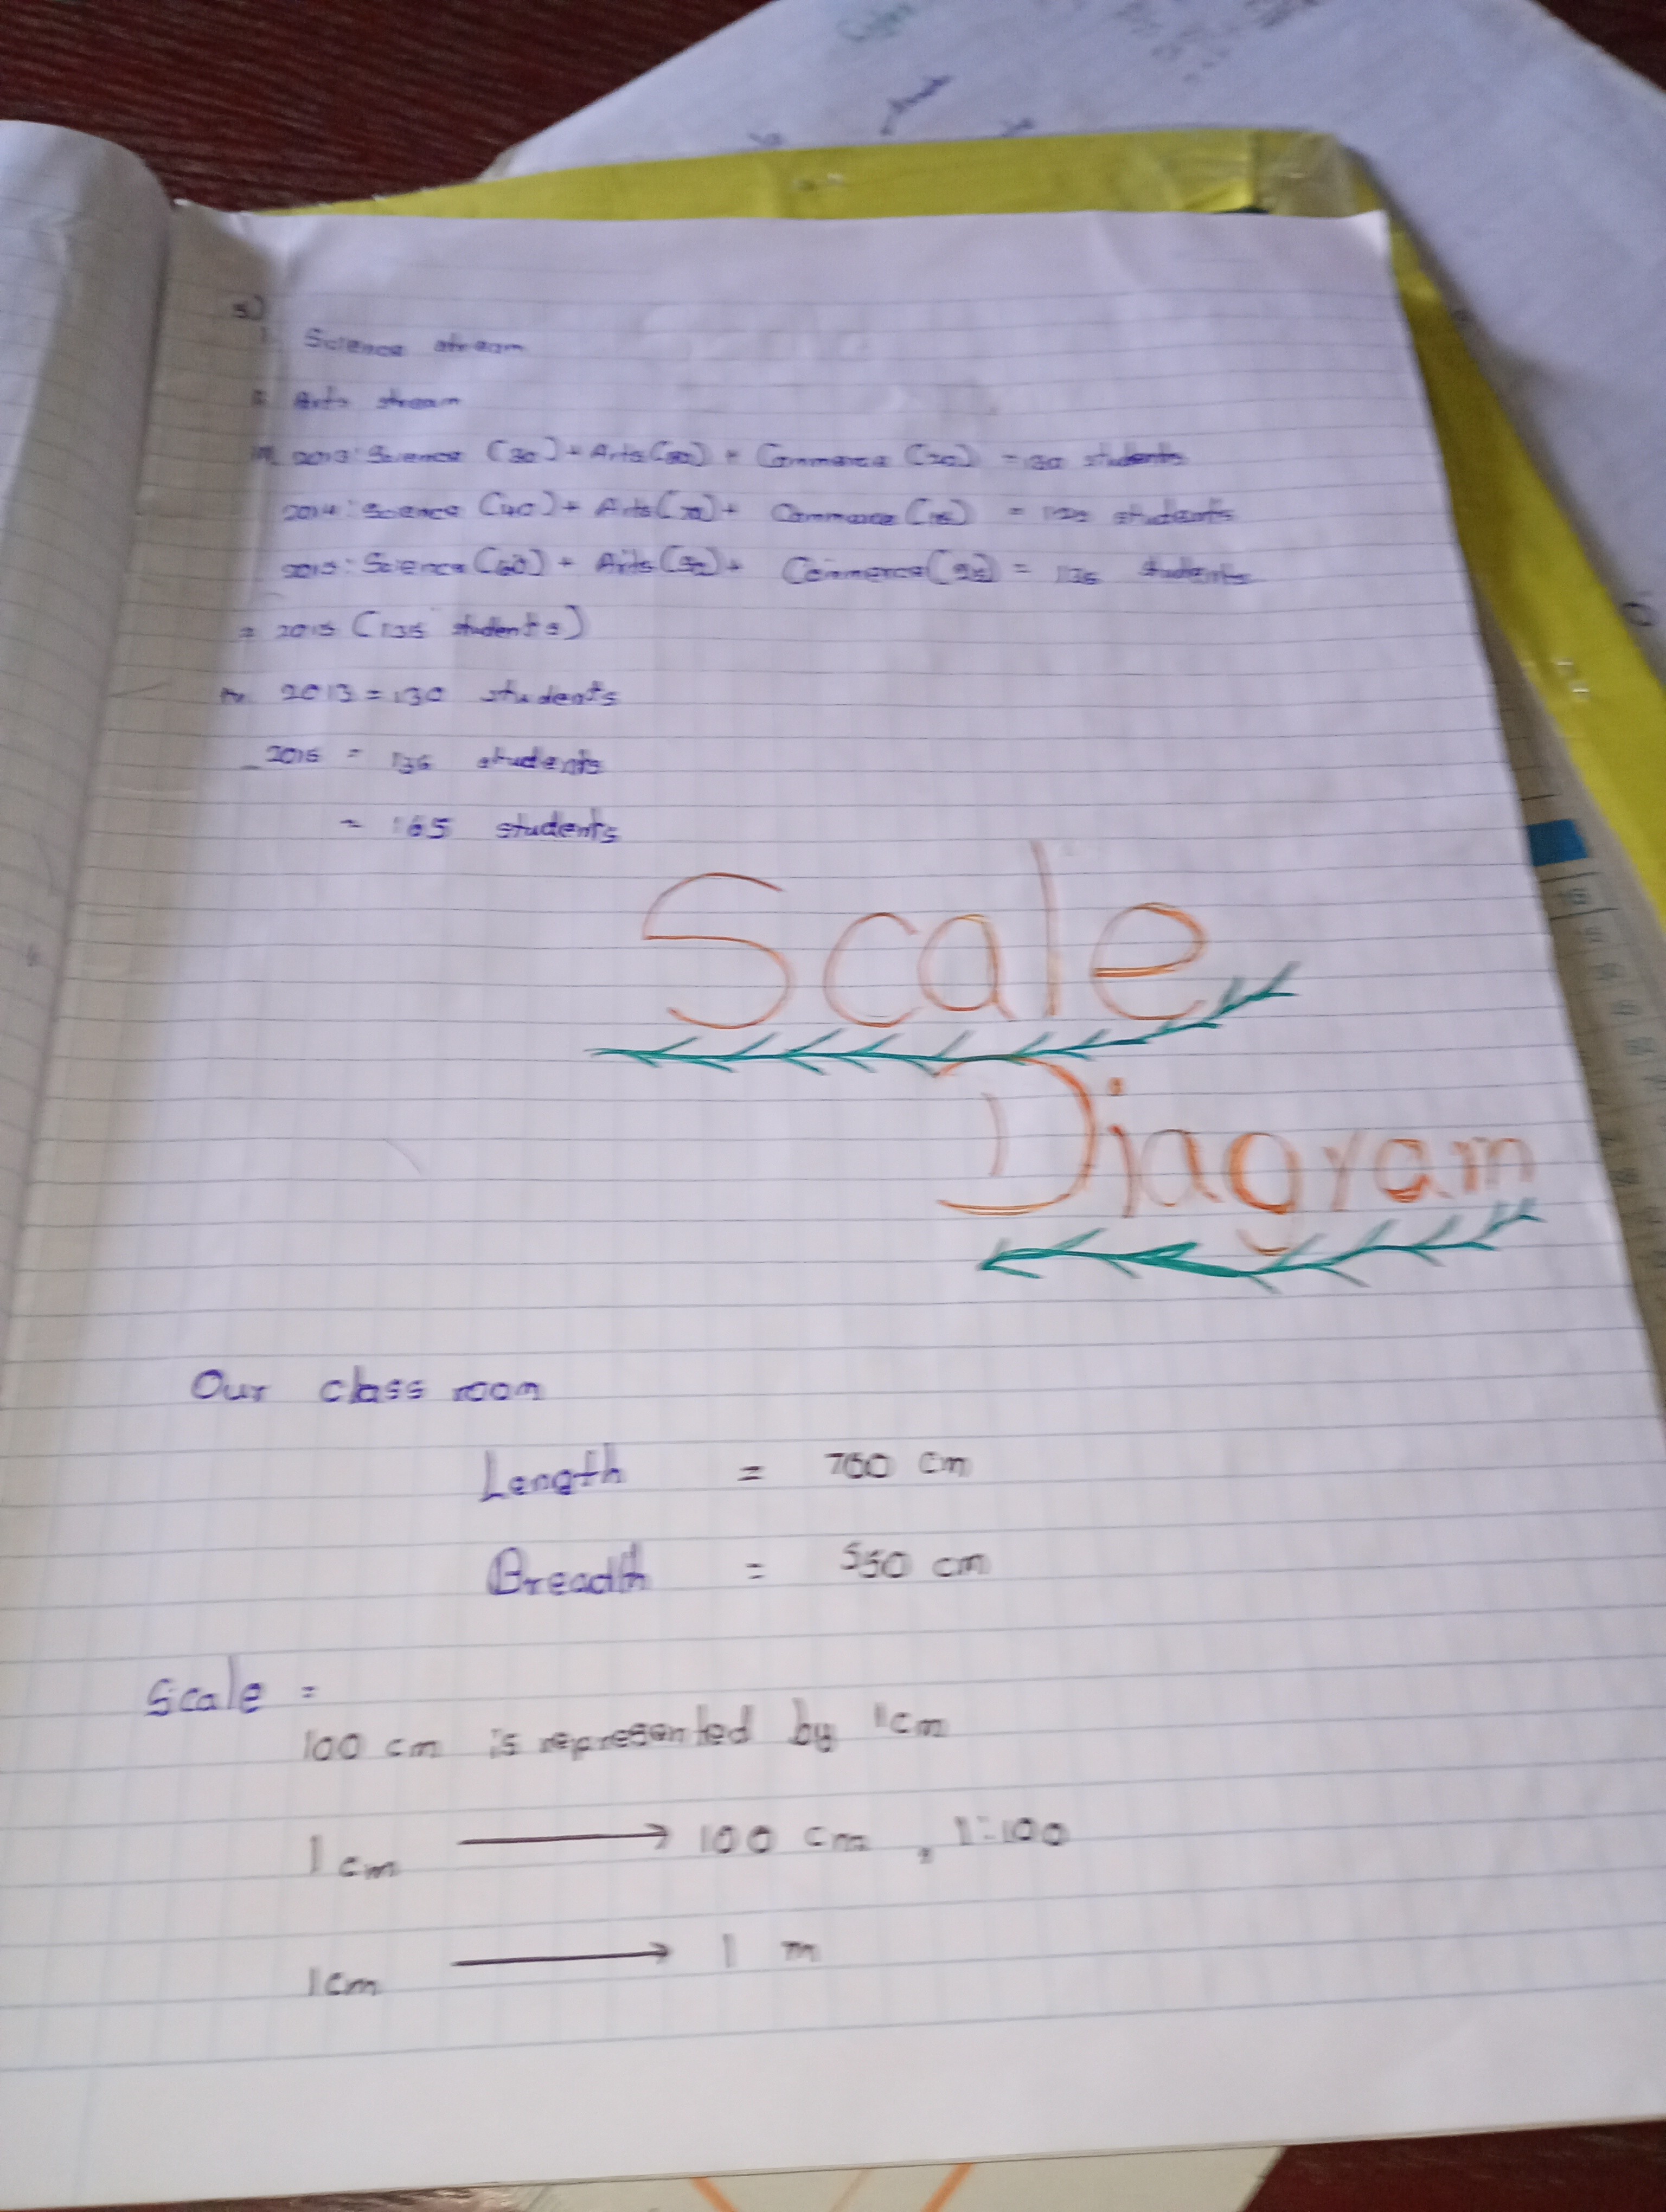 5)
I. Science stream
II. Arts stream
III. 2013: Science (30) + Arts (80) + Commerce (20) = 130 students
2014: Science (40) + Arts (70) + Commerce = students
2015: Science (60) + Arts (50) + Commerce (25) = 135 students
= 2015 (135 students)
IV. 2013 = 130 students
2015 = 135 students
= 165 students
Scale
Diagram
Our class room
Length = 760 cm
Breadth = 550 cm
Scale =
100 cm is represented by 1cm
1cm → 100 cm , 1:100
1cm → 1 m